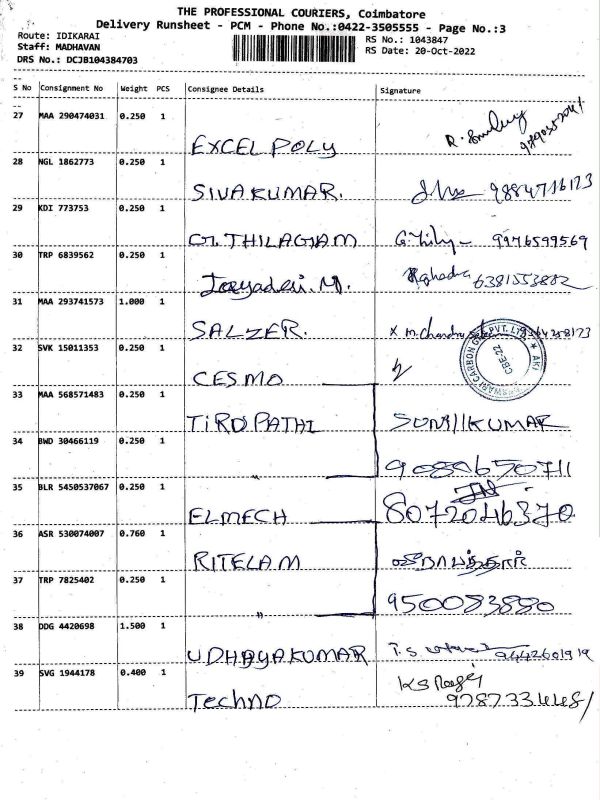 THE PROFESSIONAL COURIERS, Coimbatore
Delivery Runsheet - PCM - Phone No.:0422-3505555 - Page No.:3
Route: IDIKARAI
RS No.: 1043847
Staff: MADHAVAN
RS Date: 20-Oct-2022
DRS No.: DCJB104384703
S No Consignment No Weight PCS Consignee Details Signature
27 MAA 290474031 0.250 1 EXCEL POLY
28 NGL 1862773 0.250 1 SIVAKUMAR. 9884716173
29 KDI 773753 0.250 1 G. THILAGAM 9976599569
30 TRP 6839562 0.250 1 Jayadevi.M. 6381553882
31 MAA 293741573 1.000 1 SALZER. X M. Chandra
32 SVK 15011353 0.250 1 CESMO
CBE-22
33 MAA 568571483 0.250 1 TIRUPATHI SUNILKUMAR
34 BWD 30466119 0.250 1 " 9080650711
35 BLR 5450537067 0.250 1 ELMECH 8072046370
36 ASR 530074007 0.760 1 RITELAM
37 TRP 7825402 0.250 1 " 950083880
38 DDG 4420698 1.500 1 UDHAYAKUMAR T.S. 9442601919
39 SVG 1944178 0.400 1 Techno
9787334481